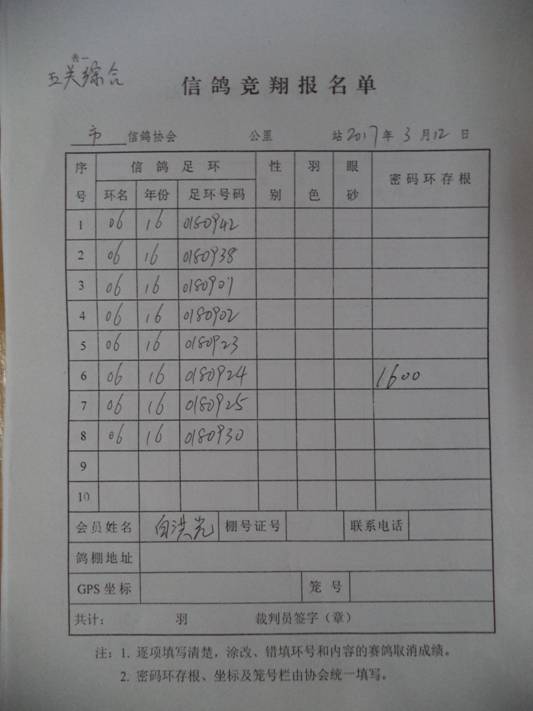 表一
五关综合
信鸽竞翔报名单
市 信鸽协会 公里 站 2017 年 3 月 12 日
序号 信鸽足环 性别 羽色 眼砂 密码环存根
环名 年份 足环号码
1 06 16 0180942
2 06 16 0180938
3 06 16 0180901
4 06 16 0180902
5 06 16 0180923
6 06 16 0180924 1600
7 06 16 0180925
8 06 16 0180930
9
10
会员姓名 白洪光 棚号证号 联系电话
鸽棚地址
GPS 坐标 笼号
共计： 羽 裁判员签字（章）
注：1. 逐项填写清楚，涂改、错填环号和内容的赛鸽取消成绩。
2. 密码环存根、坐标及笼号栏由协会统一填写。